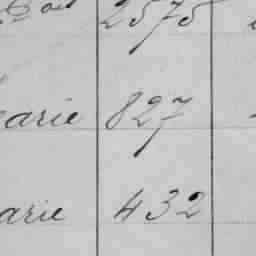 2575
arie 827
arie 432